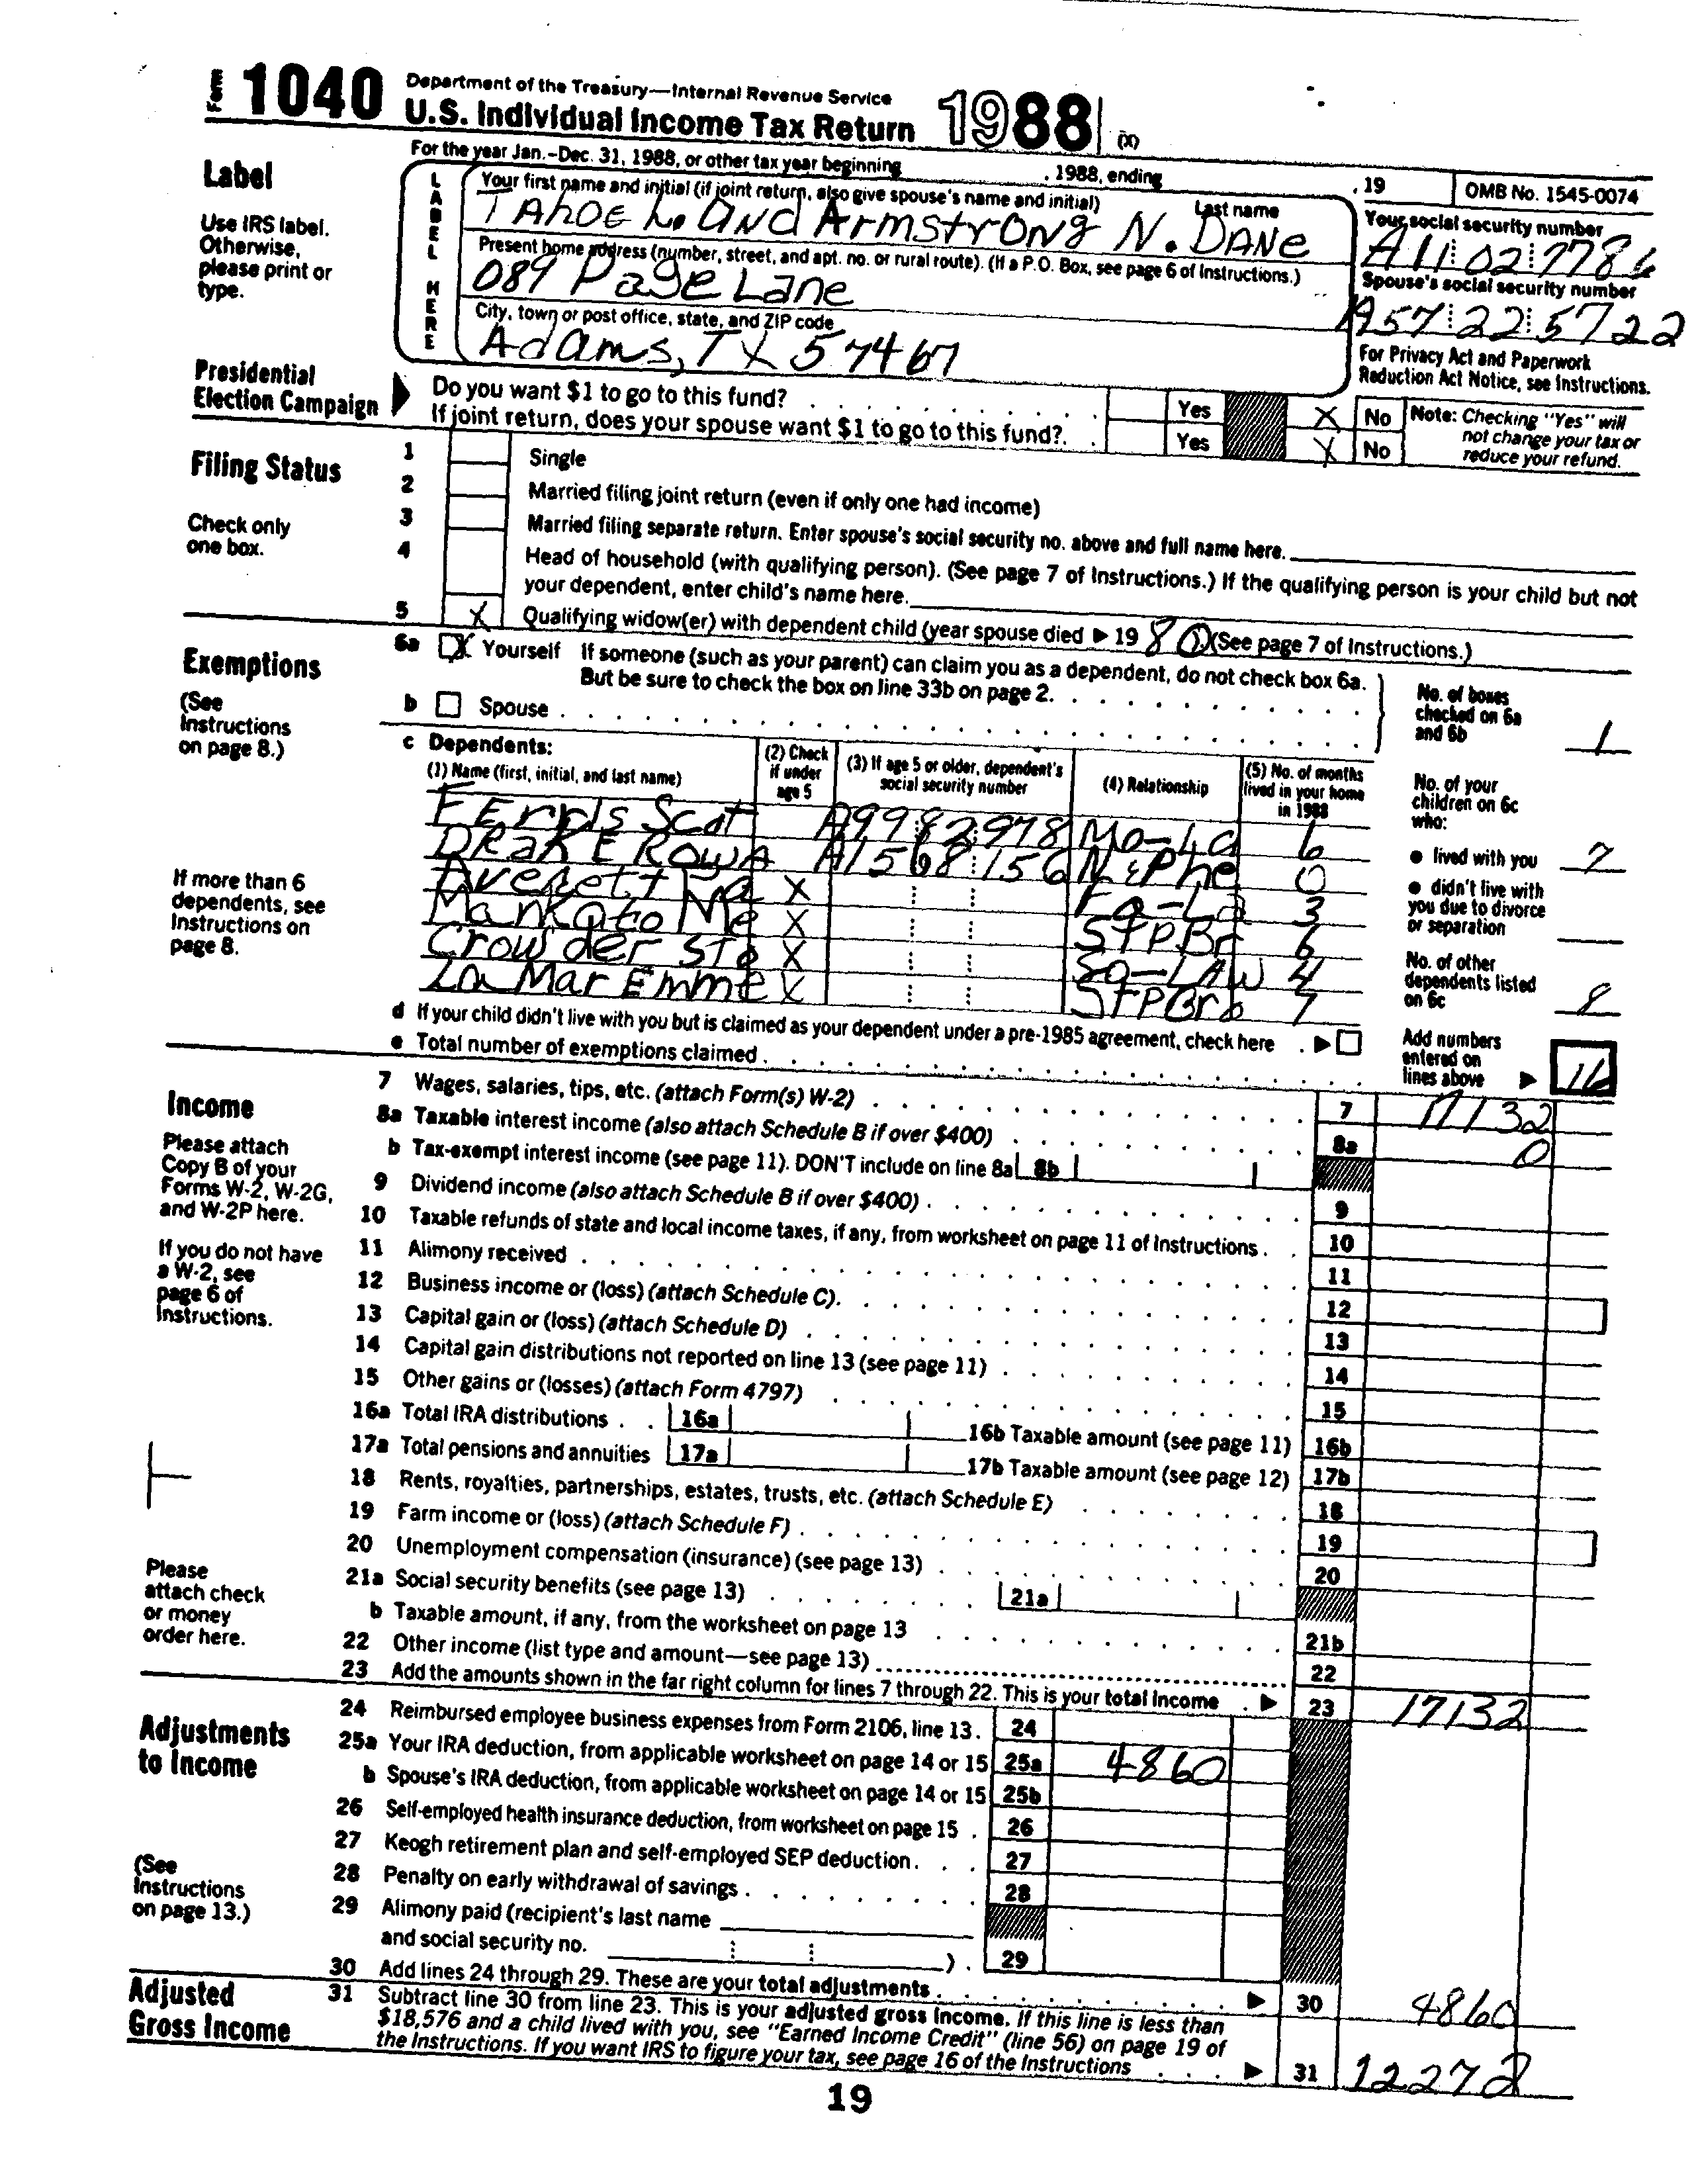 Form 1040 Department of the Treasury—Internal Revenue Service
U.S. Individual Income Tax Return 1988 (X)
For the year Jan.-Dec. 31, 1988, or other tax year beginning , 1988, ending , 19 OMB No. 1545-0074
Label
Use IRS label. Otherwise, please print or type.
LABEL HERE
Your first name and initial (if joint return, also give spouse's name and initial) Last name
TAhOE L. AND ArmstrONg N. DANE
Your social security number
A11 02 7786
Present home address (number, street, and apt. no. or rural route). (If a P.O. Box, see page 6 of Instructions.)
089 Page Lane
Spouse's social security number
A57 22 5722
City, town or post office, state, and ZIP code
Adams, TX 57467
For Privacy Act and Paperwork Reduction Act Notice, see Instructions.
Presidential Election Campaign
Do you want $1 to go to this fund? Yes X No
If joint return, does your spouse want $1 to go to this fund? Yes X No
Note: Checking "Yes" will not change your tax or reduce your refund.
Filing Status
Check only one box.
1 Single
2 Married filing joint return (even if only one had income)
3 Married filing separate return. Enter spouse's social security no. above and full name here.
4 Head of household (with qualifying person). (See page 7 of Instructions.) If the qualifying person is your child but not
your dependent, enter child's name here.
5 X Qualifying widow(er) with dependent child (year spouse died ▶ 19 80). (See page 7 of Instructions.)
Exemptions
(See Instructions on page 8.)
6a X Yourself If someone (such as your parent) can claim you as a dependent, do not check box 6a.
But be sure to check the box on line 33b on page 2.
b Spouse
No. of boxes checked on 6a and 6b 1
c Dependents:
(1) Name (first, initial, and last name) (2) Check if under age 5 (3) If age 5 or older, dependent's social security number (4) Relationship (5) No. of months lived in your home in 1988
Ferris Scot A99 82 978 Mo-La 6
DRakE ROWA A15 68 156 Niphe 0
Everett Ra X Fa-La 3
Mankato Me X STPBr 6
Crowder Sto X So-LAW 4
La Mar Emme X STPBro 7
If more than 6 dependents, see Instructions on page 8.
No. of your children on 6c who:
● lived with you 7
● didn't live with you due to divorce or separation
No. of other dependents listed on 6c 8
d If your child didn't live with you but is claimed as your dependent under a pre-1985 agreement, check here ▶
e Total number of exemptions claimed
Add numbers entered on lines above ▶ 16
Income
Please attach Copy B of your Forms W-2, W-2G, and W-2P here.
If you do not have a W-2, see page 6 of Instructions.
Please attach check or money order here.
7 Wages, salaries, tips, etc. (attach Form(s) W-2) 7 17132
8a Taxable interest income (also attach Schedule B if over $400) 8a 0
b Tax-exempt interest income (see page 11). DON'T include on line 8a 8b
9 Dividend income (also attach Schedule B if over $400) 9
10 Taxable refunds of state and local income taxes, if any, from worksheet on page 11 of Instructions 10
11 Alimony received 11
12 Business income or (loss) (attach Schedule C) 12
13 Capital gain or (loss) (attach Schedule D) 13
14 Capital gain distributions not reported on line 13 (see page 11) 14
15 Other gains or (losses) (attach Form 4797) 15
16a Total IRA distributions 16a 16b Taxable amount (see page 11) 16b
17a Total pensions and annuities 17a 17b Taxable amount (see page 12) 17b
18 Rents, royalties, partnerships, estates, trusts, etc. (attach Schedule E) 18
19 Farm income or (loss) (attach Schedule F) 19
20 Unemployment compensation (insurance) (see page 13) 20
21a Social security benefits (see page 13) 21a
b Taxable amount, if any, from the worksheet on page 13 21b
22 Other income (list type and amount—see page 13) 22
23 Add the amounts shown in the far right column for lines 7 through 22. This is your total income ▶ 23 17132
Adjustments to Income
(See Instructions on page 13.)
24 Reimbursed employee business expenses from Form 2106, line 13. 24
25a Your IRA deduction, from applicable worksheet on page 14 or 15 25a 4860
b Spouse's IRA deduction, from applicable worksheet on page 14 or 15 25b
26 Self-employed health insurance deduction, from worksheet on page 15 26
27 Keogh retirement plan and self-employed SEP deduction 27
28 Penalty on early withdrawal of savings 28
29 Alimony paid (recipient's last name
and social security no. ) 29
30 Add lines 24 through 29. These are your total adjustments ▶ 30 4860
Adjusted Gross Income
31 Subtract line 30 from line 23. This is your adjusted gross income. If this line is less than
$18,576 and a child lived with you, see "Earned Income Credit" (line 56) on page 19 of
the Instructions. If you want IRS to figure your tax, see page 16 of the Instructions ▶ 31 12272
19